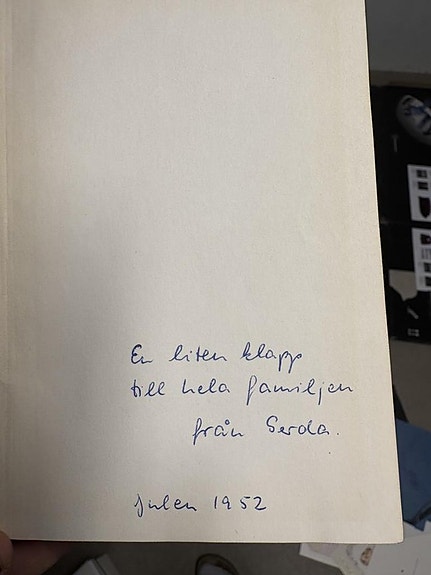 En liten klapp
till hela familjen
från Serda.
Julen 1952